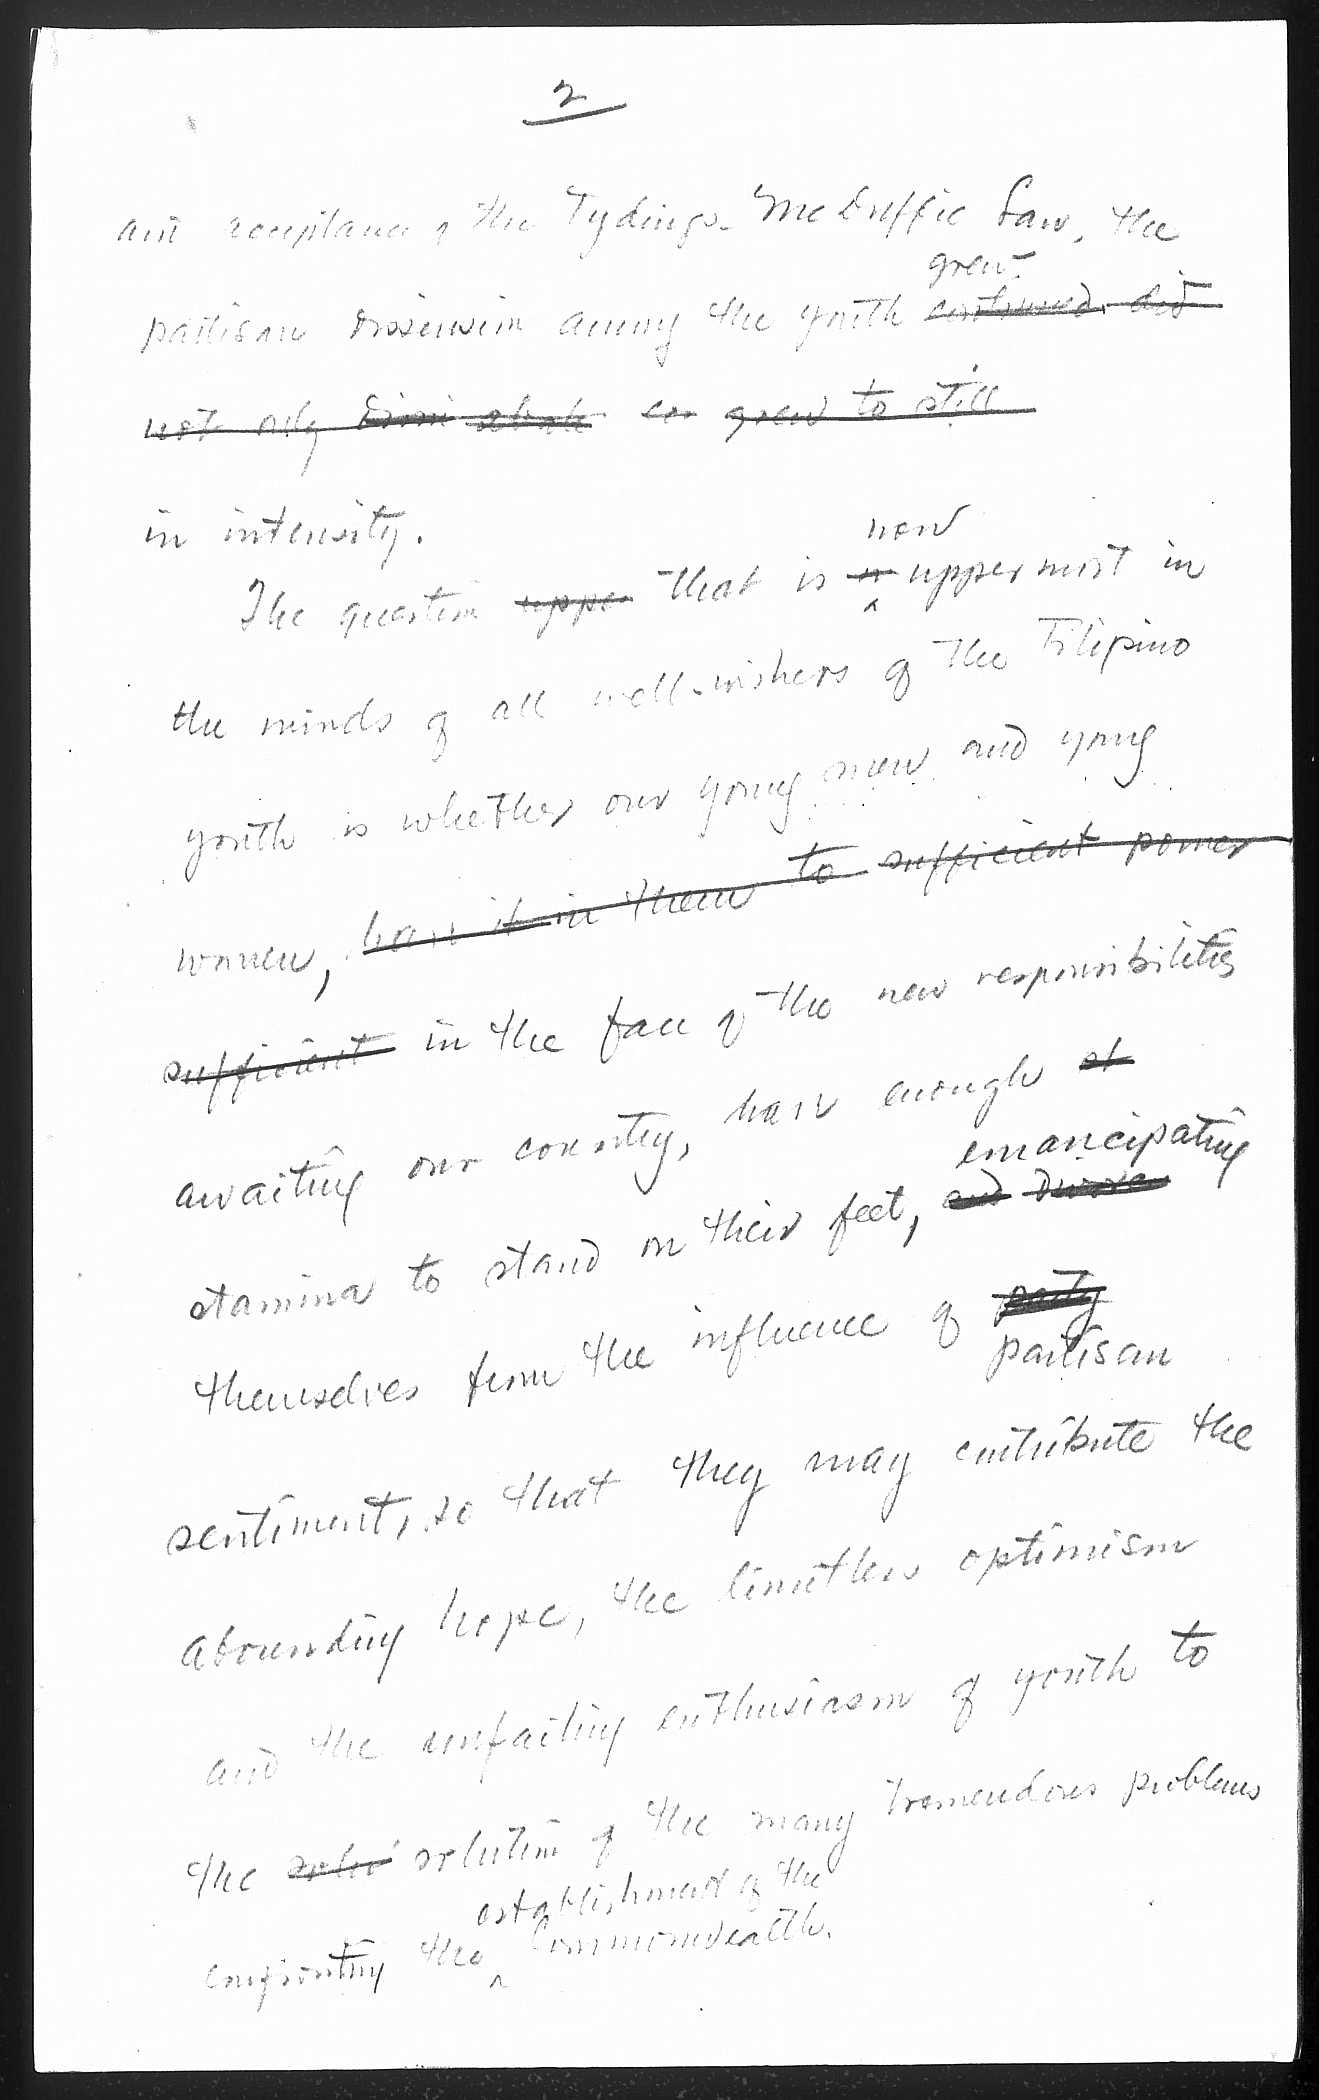 2
and acceptance of the Tydings-McDuffie Law, the
grew
partisan dissension among the youth continued, did
not only grew to still
in intensity.
now
The question uppe that is uppermost in
the minds of all well-wishers of the Filipino
youth is whether our young men and young
women, have it in them to sufficient power
sufficient in the face of the new responsibilities
awaiting our country, have enough st
emancipating
stamina to stand on their feet, and divorce
themselves from the influence of party
partisan
sentiment, so that they may contribute the
abounding hope, the limitless optimism
and the unfailing enthusiasm of youth to
the solu solution of the many tremendous problems
establishment of the
confronting the Commonwealth.